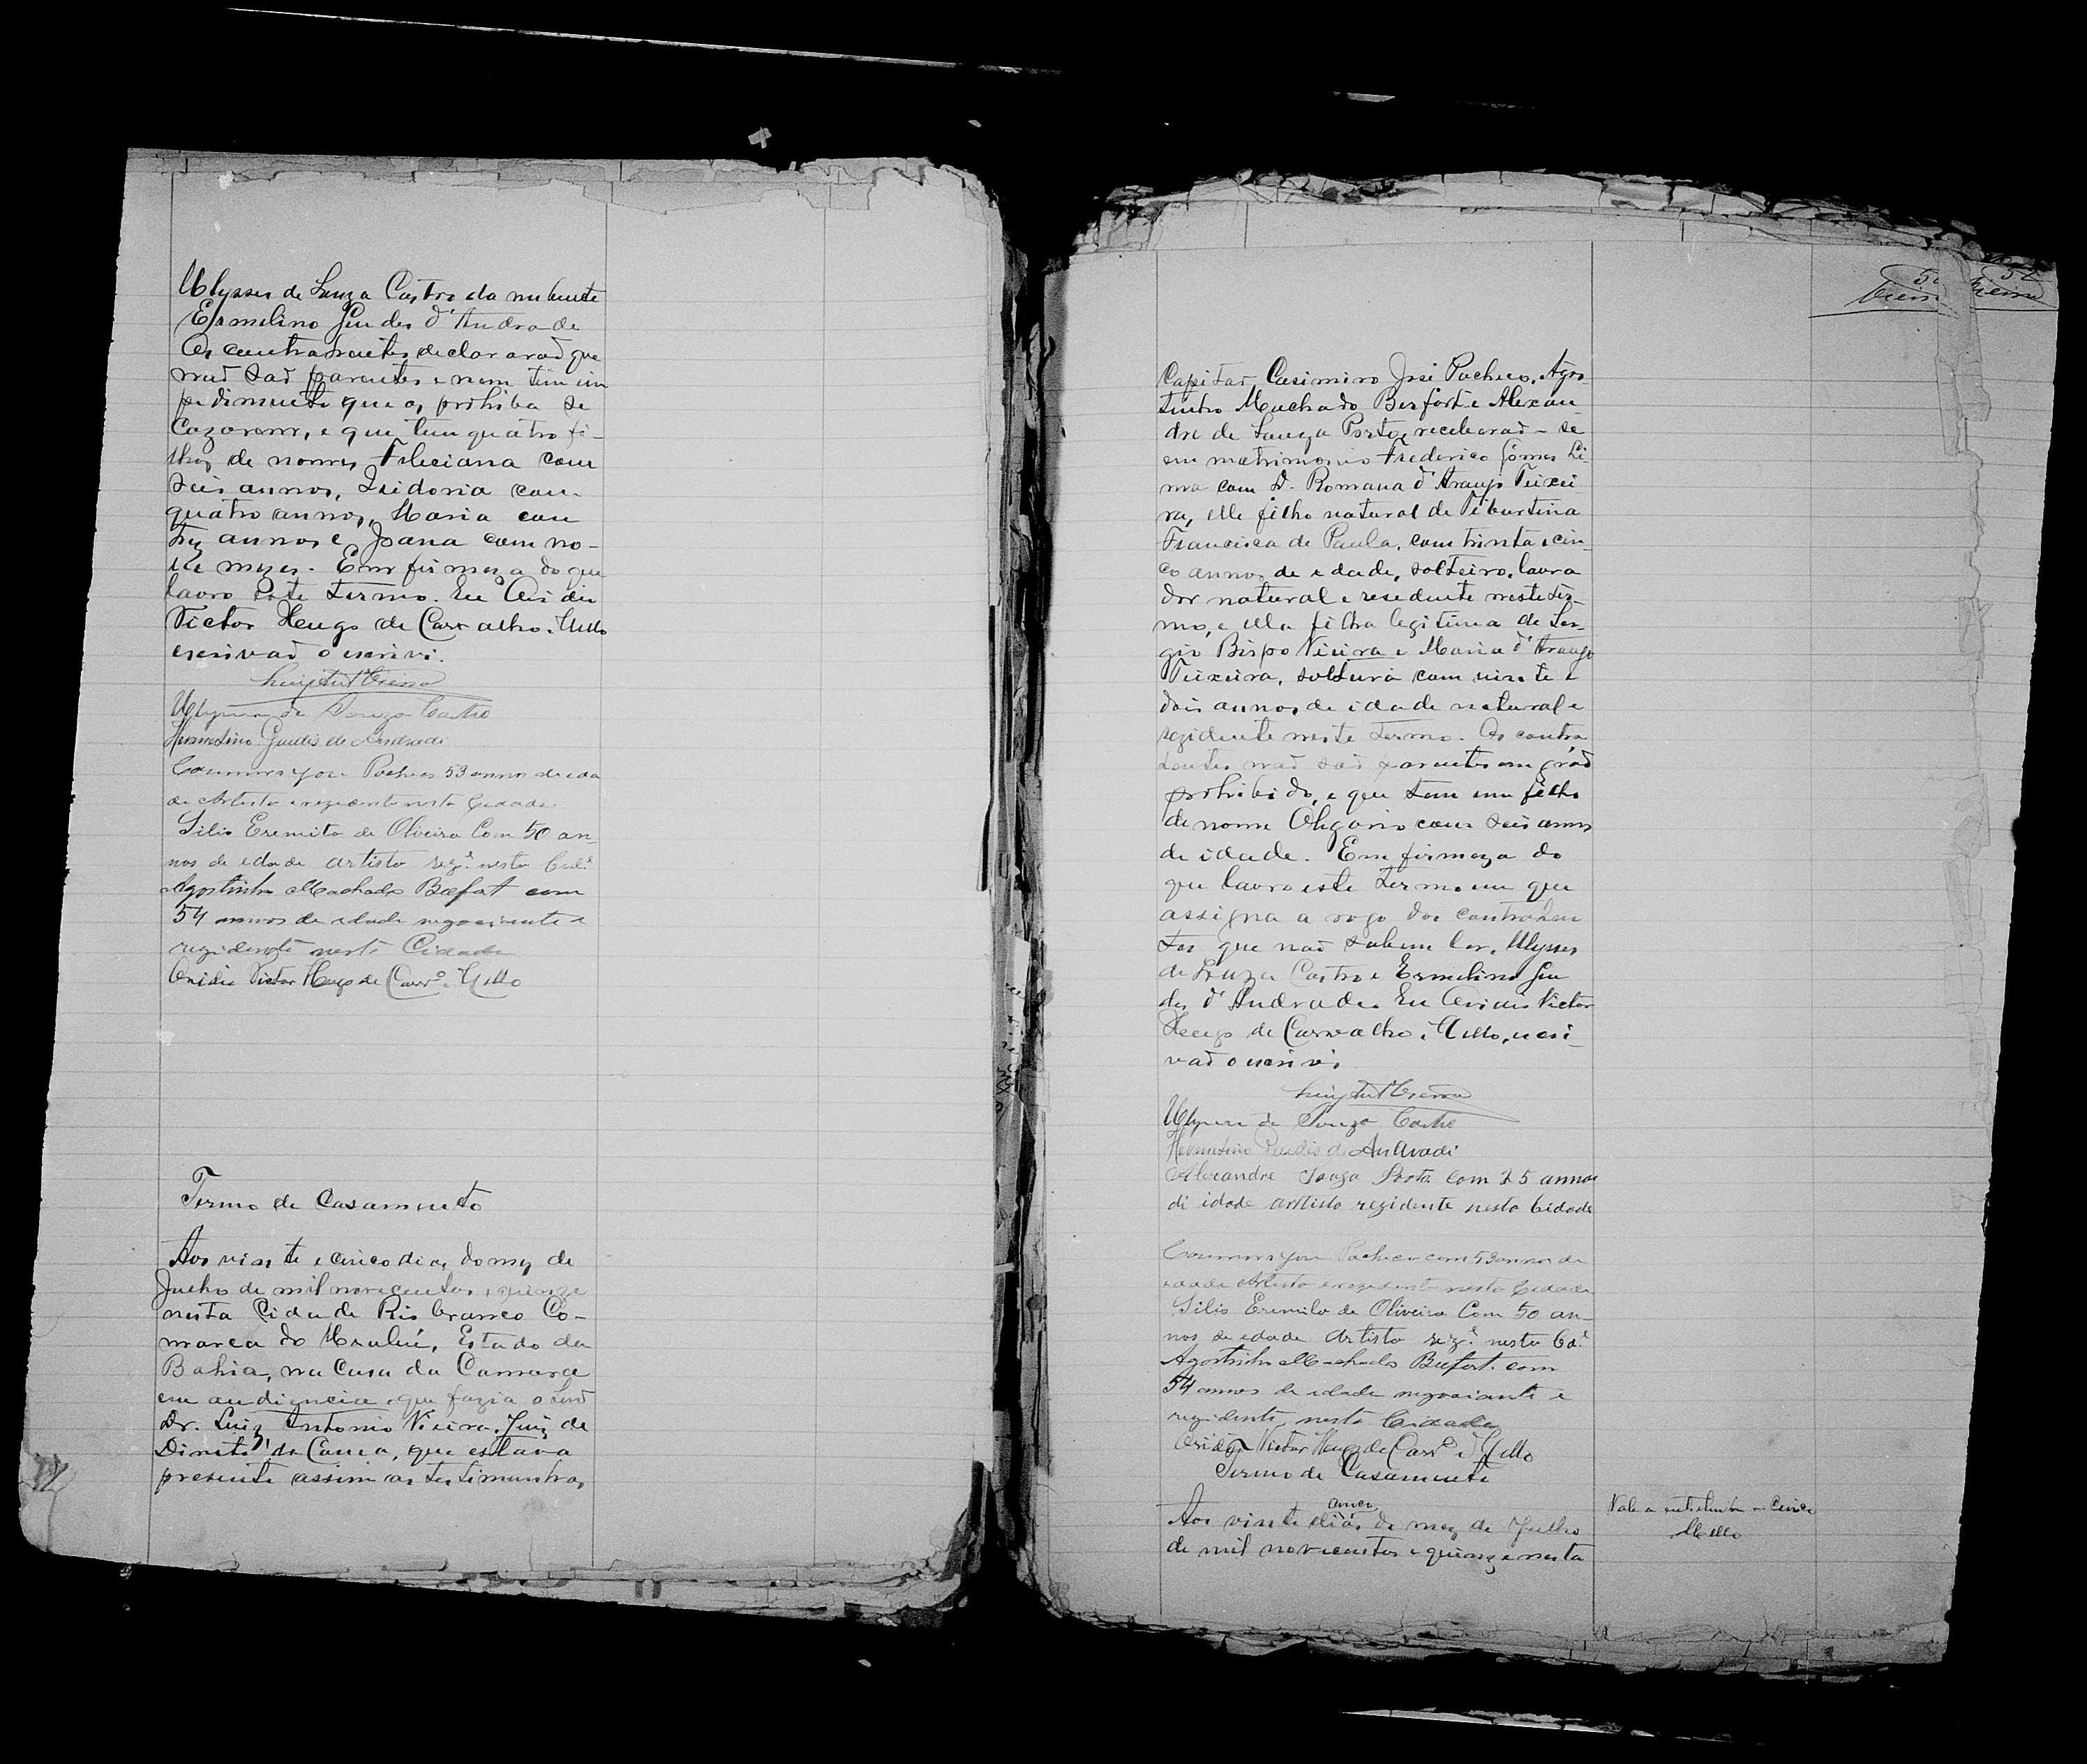 Ulysses de Souza Castro da nubente
Ermelino Guedes d'Andrade
Os contrahentes declararaõ que
naõ saõ parentes e nem têm im
pedimento que os prohiba se
Cazarem, e que tem quatro fi-
lhos de nomes Feliciana com
seis annos, Isidoria com
quatro annos, Maria com
trez annos e Joana com no-
ve mezes. Em firmeza do que
lavro este termo. Eu Ovidio
Victor Hugo de Carvalho e Mello
escrivaõ o escrivi.
Luiz Ant Vieira
Ulysses de Souza Castro
Hermelino Guedis de Andradi
Casimiro José Pacheco 53 annos de eda
de Artista e rezidente nesta Cidade.
Silio Eremito de Oliveira Com 50 an-
nos de edade artista rezᵉ nesta Cidᵉ
Agostinho Machado Befort com
54 annos de edade negociante e
rezidente nesta Cidade
Ovidio Victor Hugo de Carvº e Mello
Termo de Casamento
Aos vinte e cinco dias do mez de
Julho de mil novecentos e quinze
nesta Cidade Rio branco Co-
marca do Urubú, Estado da
Bahia, na Casa da Camara
em audiencia que fazia o
Dr. Luiz Antonio Vieira, Juiz de
Direito da Comca, que estava
presente assim as testimunhas,
52
Vieira
Capitaõ Casimiro José Pacheco, Agos-
tinho Machado Berfort e Alexan-
dre de Souza Porto, receberaõ-se
em matrimonio Frederico Gomes Li-
ma com D. Romana d'Araujo Teixei
ra, elle filho natural de Tiburtina
Francisca de Paula, com trinta e cin-
co annos de edade, solteiro, lavra
dor natural e residente neste ter-
mo, e ella filha legitima de Ser-
gio Bispo Vieira e Maria d'Araujo
Teixeira, solteira com vinte e
dois annos de idade natural e
rezidente neste termo. Os contra
hentes naõ saõ parentes em gráo
prohibido, e que tem um filho
de nome Olegario com seis annos
de idade. Em firmeza do
que lavro este termo em que
assigna a rogo dos contrahen
tes que naõ sabem ler, Ulysses
de Souza Castro e Ermelino Gue
des d'Andrade. Eu Ovidio Victor
Hugo de Carvalho e Mello, escri-
vaõ o escrivi.
Luiz Ant Vieira
Ulysses de Souza Castro
Hermelino Guedis de Andradi
Alexandre Souza Porto Com 25 annos
di idade arttista rezidente nesta Cidade
Casimiro José Pacheco com 53 annos de
edade Artista e rezidente nesta Cidade
Silio Eremito de Oliveira Com 50 an-
nos de edade Artista rezᵉ nesta Cdᵉ
Agostinho Machado Befort com
54 annos de edade negociante e
rezidente nesta Cidade
Ovidio Victor Hugo de Carvº e Mello
Termo de Casamento
Aos vinte dias do mez de Julho
de mil novecentos e quinze nesta
Vale a entrelinha
Mello